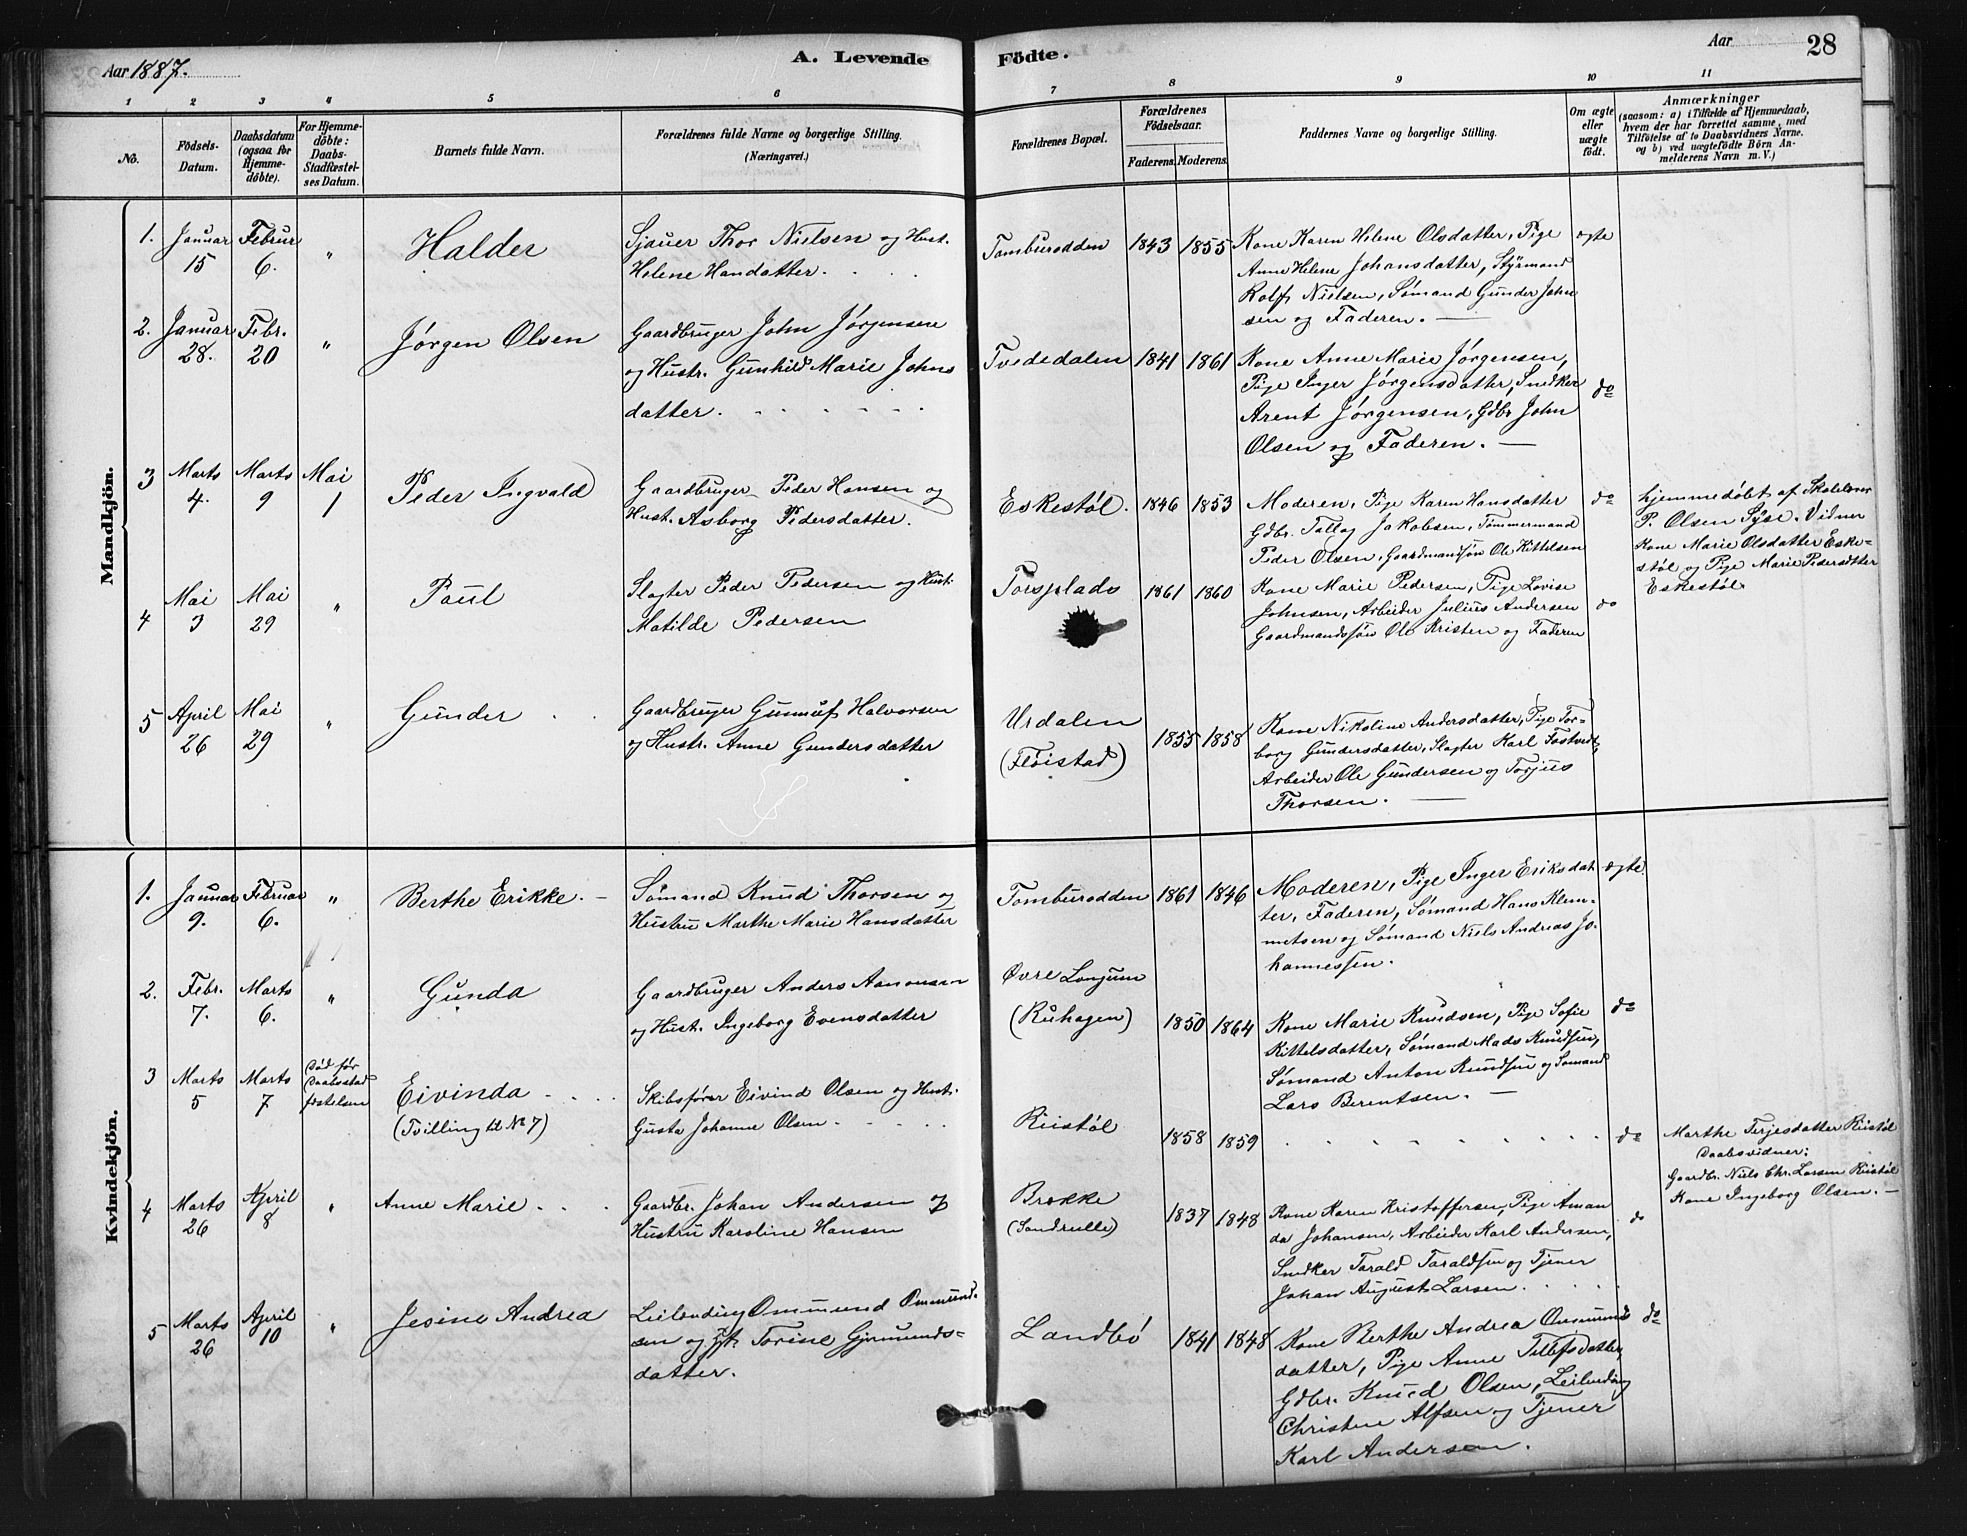 Aar 1887.
A. Levende
Födte.
Aar
28
1
2
3
4
5
6
7
8
9
10
11
No.
Födsels-
Datum.
Daabsdatum
(ogsaa for
Hjemme-
döbte).
For Hjemme-
döbte:
Daabs-
Stadfæstel-
ses Datum.
Barnets fulde Navn.
Forældrenes fulde Navne og borgerlige Stilling.
(Næringsvei.)
Forældrenes Bopæl.
Forældrenes
Födselsaar.
Faderens. Moderens.
Faddernes Navne og borgerlige Stilling.
Om ægte
eller
uægte
födt.
Anmærkninger
(saasom: a) i Tilfælde af Hjemmedaab,
hvem der har forrettet samme, med
Tilföielse af to Daabsvidners Navne.
og b) ved uægtefödte Börn An-
melderens Navn m. V.)
Mandkjön.
1. Januar 15 Februar 6. " Halder
Sjauer Thor Nielsen og Hust.
Helene Handatter.
Tomburodden 1843 1855
Kone Karen Helene Olsdatter, Pige
Anne Helene Johansdatter, Styrmand
Rolf Nielsen, Sømand Gunder John
sen og Faderen. —
ægte
2. Januar 28. Febr. 20 " Jørgen Olsen
Gaardbruger John Jørgensen
og Hustr. Gunhild Marie Johns
datter.
Tvededalen 1841 1861
Kone Anne Marie Jørgensen,
Pige Inger Jørgensdatter, Snedker
Arent Jørgensen, Gdbr John
Olsen og Faderen. —
do
3 Marts 4. Marts 9 Mai 1 Peder Ingvald
Gaardbruger Peder Hansen og
Hust. Asborg Pedersdatter.
Eskestøl. 1846 1853
Moderen, Pige Karen Hansdatter
Gdbr. Tallag Jakobsen, Tømmermand
Peder Olsen, Gaardmandsøn Ole Kittelsen
do
hjemmedøbt af Skolelærer
P. Olsen Syse. Vidner
Kone Marie Olsdatter Eske-
støl og Pige Marie Pedersdtter
Eskestøl
4 Mai 3 Mai 29 " Paul
Slagter Peder Pedersen og Hust.
Matilde Pedersen
Torsplads 1861 1860
Kone Marie Pedersen, Pige Lovise
Johnsen, Arbeider Julius Andersen
Gaardmandssøn Ole Kristen og Faderen
do
5 April 26 Mai 29 " Gunder
Gaardbruger Gunnuf Halvorsen
og Hustr. Anne Gundersdatter
Urdalen
(Fløistad)
1855 1858
Kone Nikoline Andersdatter, Pige Tor-
borg Gundersdatter, Slagter Karl Tostvedt,
Arbeider Ole Gundersen og Torjus
Thorsen. —
Kvindekjön.
1. Januar 9. Februar 6. " Berthe Erikke. —
Sømand Knud Thorsen og
Hustru Marthe Marie Hansdatter
Tomburodden 1861 1846
Moderen, Pige Inger Eriksdat
ter, Faderen, Sømand Hans Klem-
metsen og Sømand Niels Andreas Jo-
hannessen.
ægte
2. Febr. 7. Marts 6. " Gunda
Gaardbruger Anders Aanonsen
og Hust. Ingeborg Evensdatter
Øvre Longum
(Ruhagen)
1850 1864
Kone Marie Knudsen, Pige Sofie
Kittelsdatter, Sømand Mads Knudsen,
Sømand Anton Knudsen og Sømand
Lars Berentsen. —
do
3 Marts 5 Marts 7.
Død før
Daabsstad
fæstelsen
Eivinda
(Tvilling til No 7)
Skibsfører Eivind Olsen og Hust.
Gusta Johanne Olsen
Riistøl
1858 1859
do
Marthe Terjesdatter Riistøl
Daabsvidner:
Gaardbr. Niels Chr. Larsen Riistøl
Kone Ingeborg Olsen. —
4 Marts 26 April 8 " Anne Marie
Gaardbr. Johan Andersen og
Hustru Karoline Hansen
Brekke
(Sandrulle)
1837 1848
Kone Karen Kristoffersen, Pige Aman
da Johansen, Arbeider Karl Andersen,
Snedker Tarald Taraldsen og Tjener
Johan August Larsen.
do
5 Marts 26 April 10 " Jesine Andrea
Leilending Ommund Ommund-
sen og Hst. Torine Gjermunds-
datter.
Landbø 1841 1848
Kone Berthe Andrea Ommunds
datter, Pige Anne Tellefsdatter,
Gdbr. Knud Olsen, Leilending
Christen Alfsen og Tjener
Karl Andersen.
do